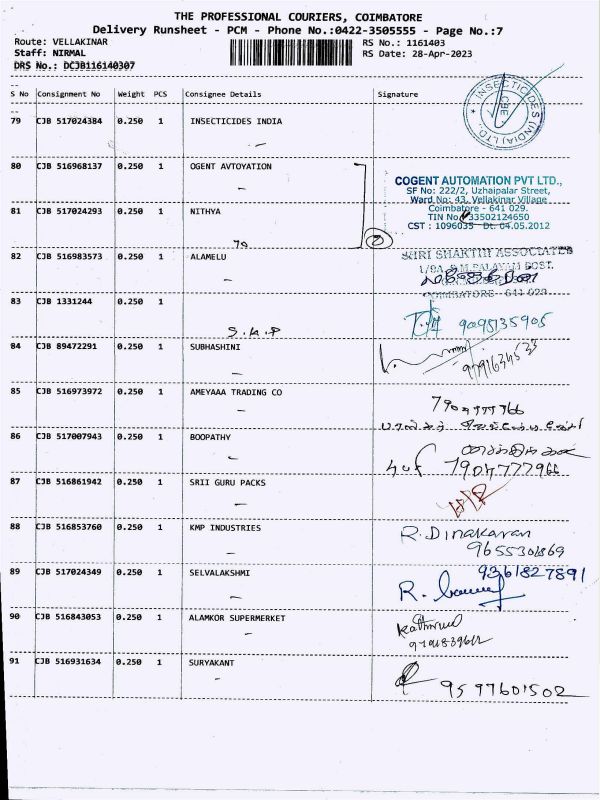 THE PROFESSIONAL COURIERS, COIMBATORE
Delivery Runsheet - PCM - Phone No.:0422-3505555 - Page No.:7
Route: VELLAKINAR RS No.: 1161403
Staff: NIRMAL RS Date: 28-Apr-2023
DRS No.: DCJB116140307
S No Consignment No Weight PCS Consignee Details Signature
79 CJB 517024384 0.250 1 INSECTICIDES INDIA
INSECTICIDES (INDIA) LTD. CBE
80 CJB 516968137 0.250 1 OGENT AVTOYATION
COGENT AUTOMATION PVT LTD.,
SF No: 222/2, Uzhaipalar Street,
Ward No: 43, Vellakinar Village
81 CJB 517024293 0.250 1 NITHYA
Coimbatore - 641 029.
TIN No 33502124650
CST : 1096035 Dt. 04.05.2012
79
2
82 CJB 516983573 0.250 1 ALAMELU
SHRI SHAKTHI ASSOCIATES
COIMBATORE - 641 029
83 CJB 1331244 0.250 1
S.K.P
9095135905
84 CJB 89472291 0.250 1 SUBHASHINI
85 CJB 516973972 0.250 1 AMEYAAA TRADING CO
86 CJB 517007943 0.250 1 BOOPATHY
7904777966
87 CJB 516861942 0.250 1 SRII GURU PACKS
88 CJB 516853760 0.250 1 KMP INDUSTRIES
R. Dinakaran
89 CJB 517024349 0.250 1 SELVALAKSHMI
9361827891
R.
90 CJB 516843053 0.250 1 ALAMKOR SUPERMERKET
91 CJB 516931634 0.250 1 SURYAKANT
9597601502